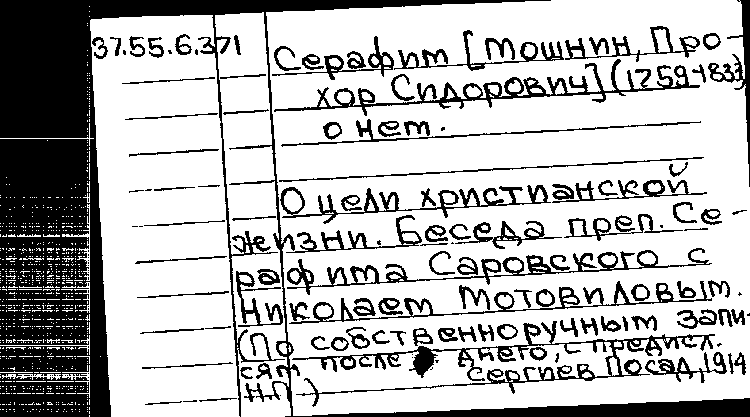 37.55.6.371 Серафим [Мошнин, Про-
хор Сидорович] (1759-1833)
о нем.
О цели христианской
жизни. Беседа преп. Се-
рафима Саровского с
Николаем Мотовиловым.
(По собственноручным запи-
сям последнего, с предисл.
Н.П.) Сергиев Посад, 1914